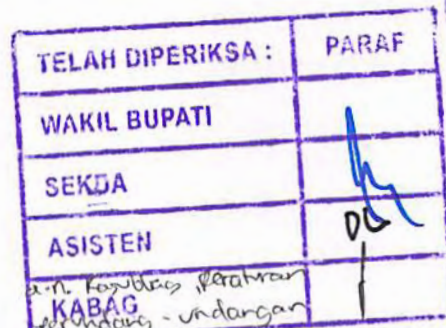 TELAH DIPERIKSA : PARAF
WAKIL BUPATI
SEKDA
ASISTEN
a.n. Kasubbag Peraturan
KABAG
Perundang-undangan